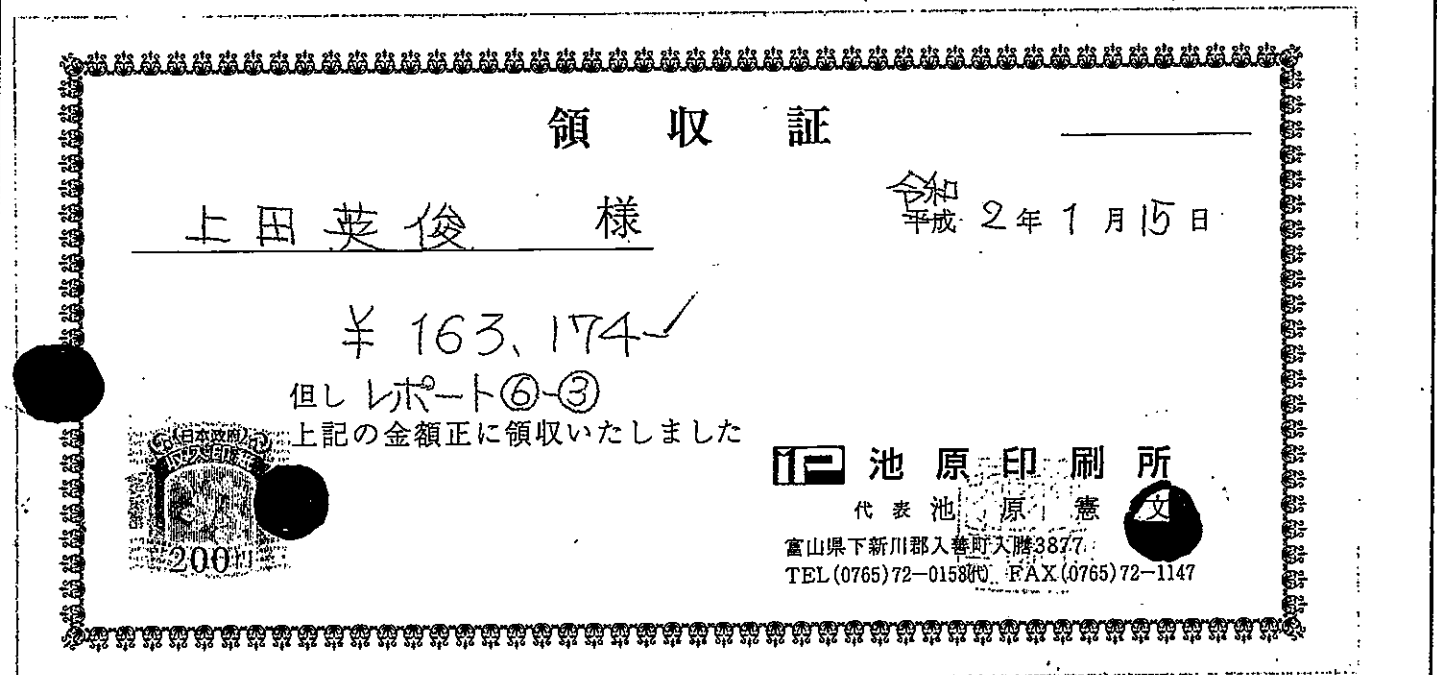 領収証
上田英俊 様
令和
平成 2年1月15日
¥163、174
但し レポート⑥-③
上記の金額正に領収いたしました
日本政府
収入印紙
200円
池原印刷所
代表 池原憲文
富山県下新川郡入善町入膳3877
TEL(0765)72−0158㈹ FAX(0765)72−1147